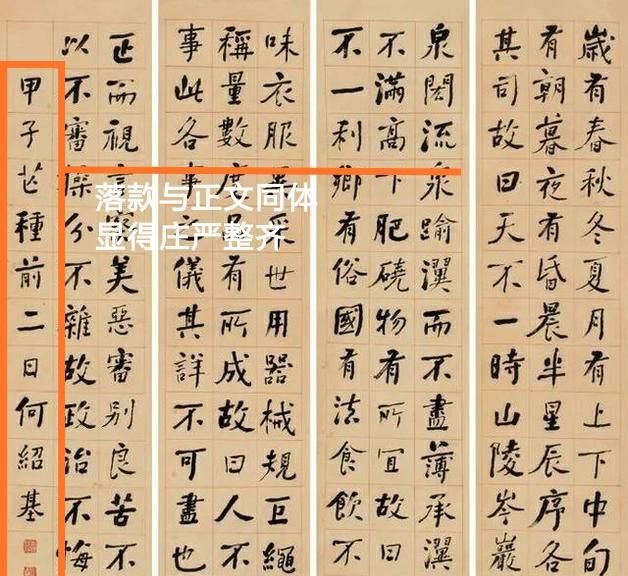 歲有春秋冬夏月有上下中旬
有朝暮夜有昏晨半星辰序各
其司故曰天不一時山陵岑巖
泉閎流泉踰瀷而不盡薄承瀷
不滿高下肥磽物有所宜故曰
不一利鄉有俗國有法食飲不
味衣服世用器械規巨繩
稱量數度有所成故曰人不
事此各事儀其詳不可盡也
正而視言美惡審別良苦不
以不審操分不雜故政治不悔
甲子芒種前二日何紹基
落款与正文同体
显得庄严整齐